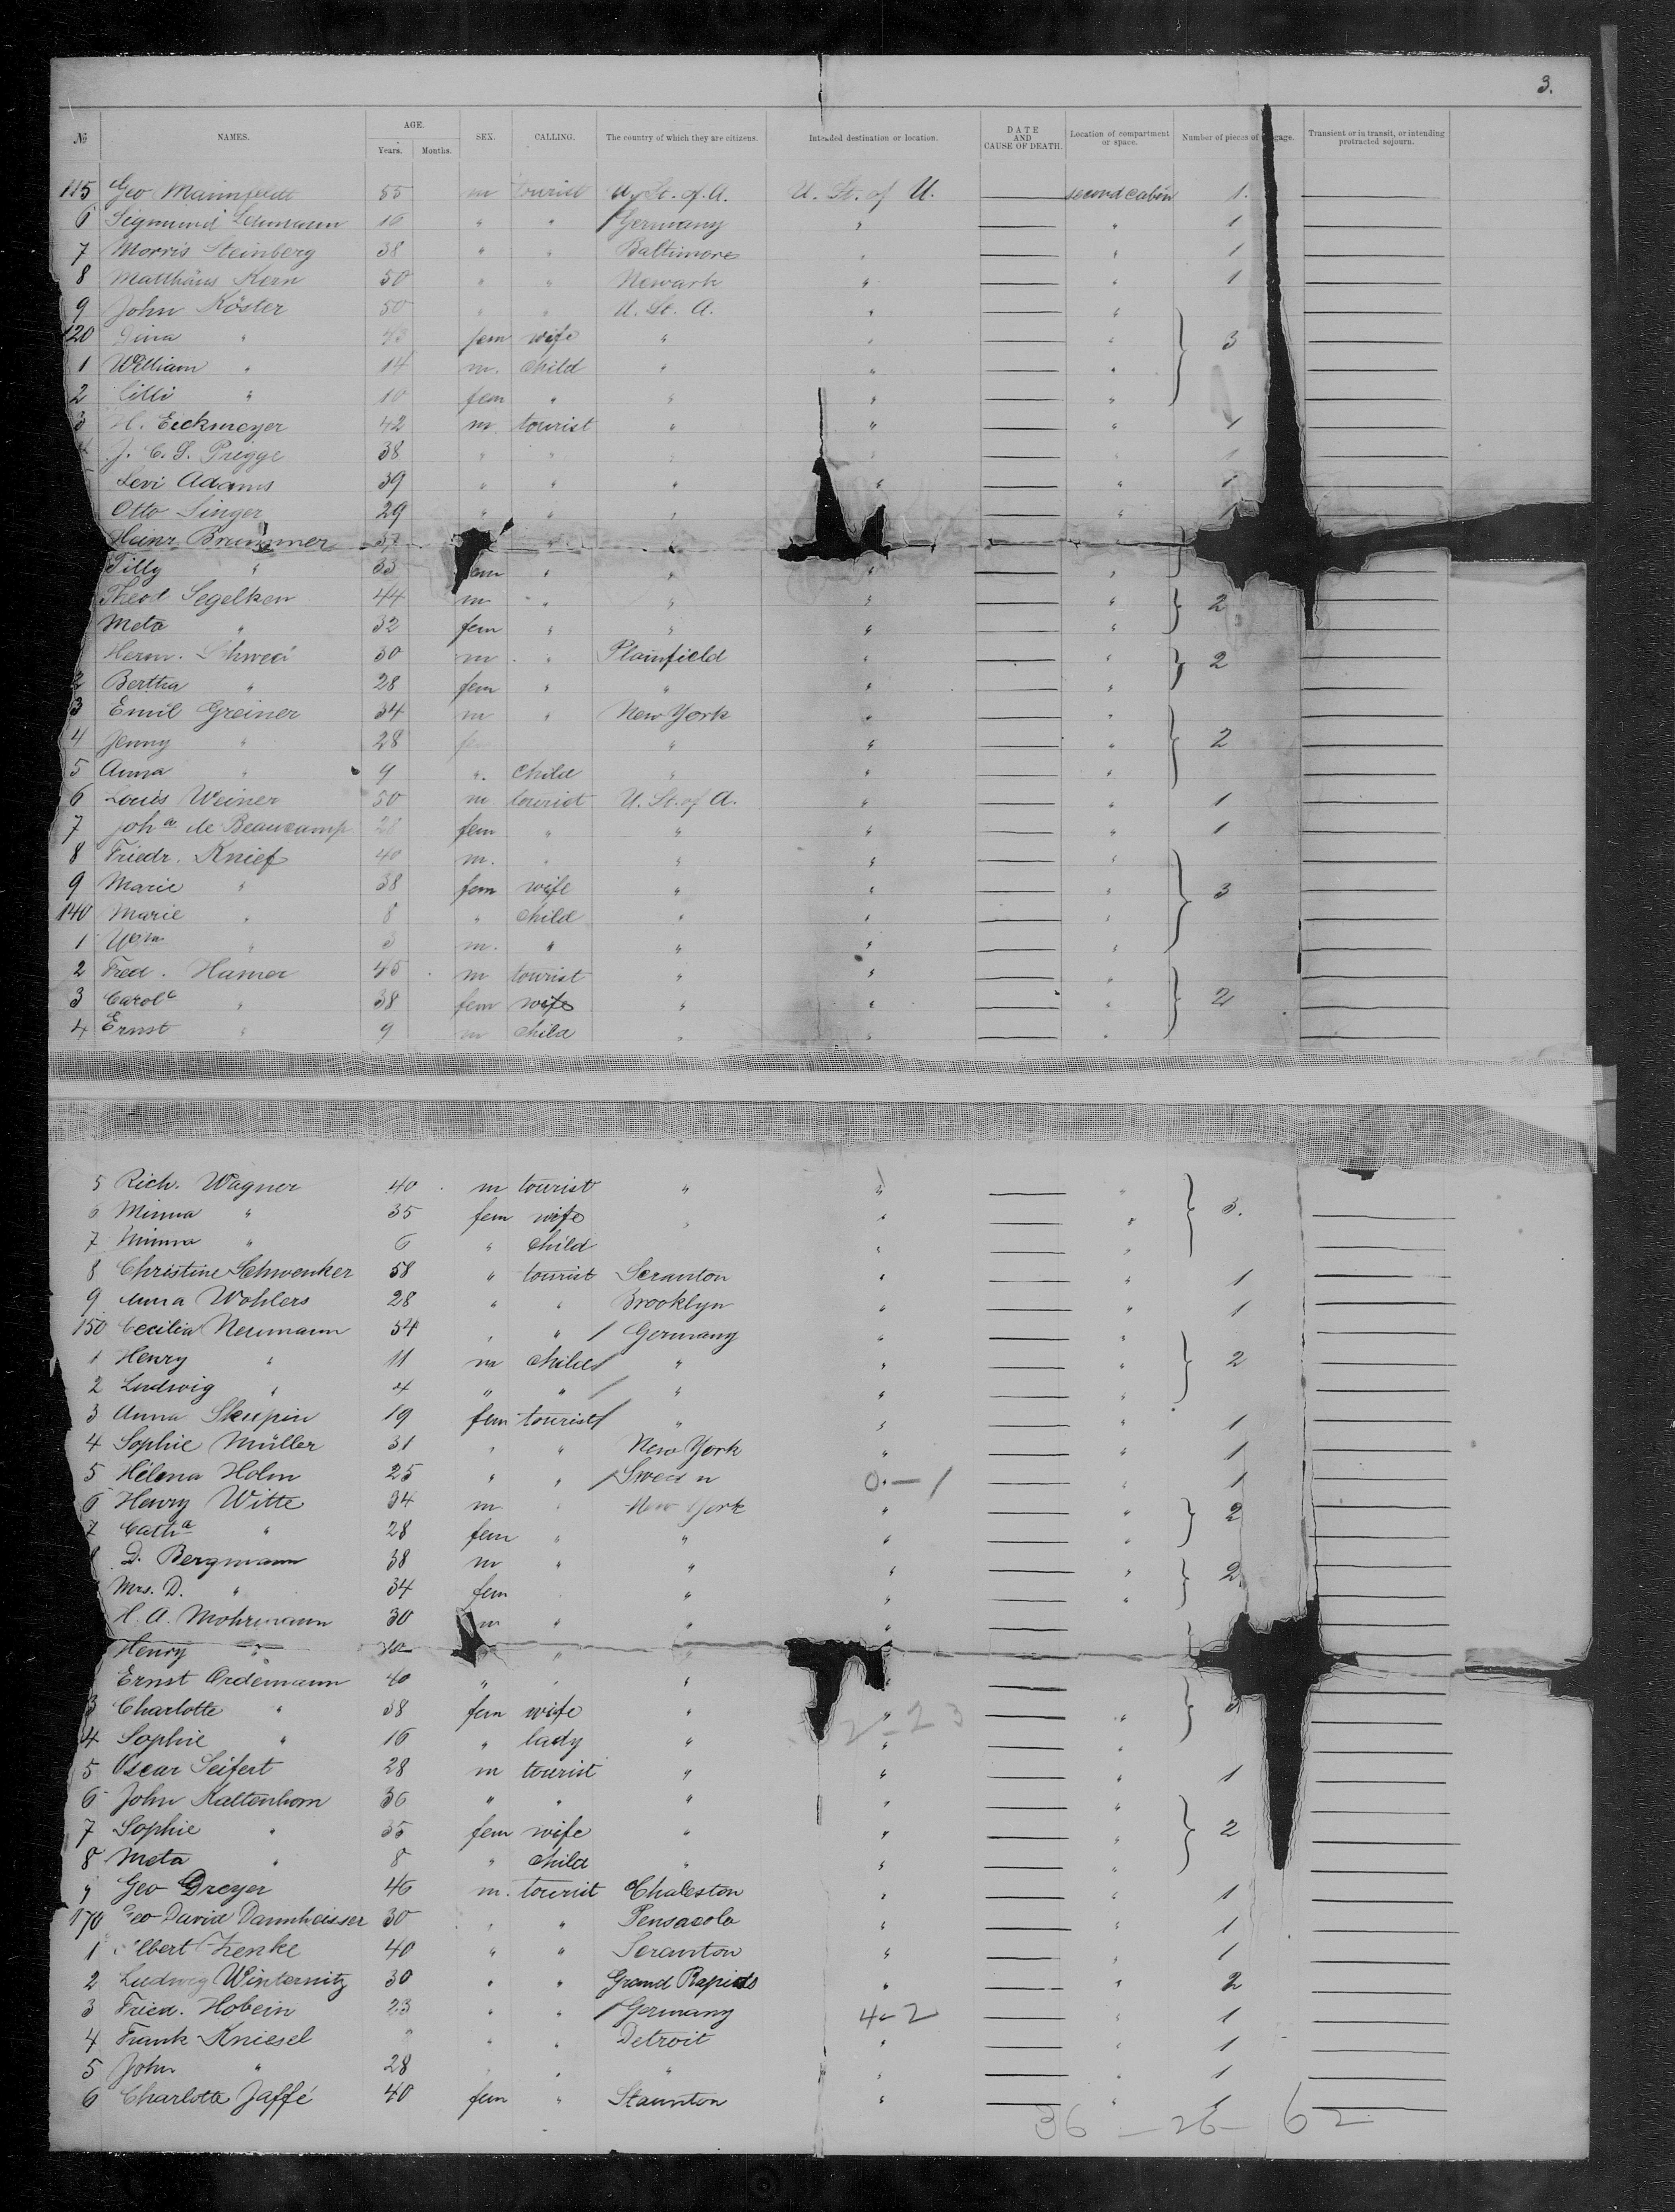 3.
№ NAMES. AGE. Years. Months. SEX. CALLING. The country of which they are citizens. Intended destination or location. DATE AND CAUSE OF DEATH. Location of compartment or space. Number of pieces of gage. Transient or in transit, or intending protracted sojourn.
115 Geo Mannfeldt 55 m tourist U. St. of A. U. St. of U. second cabin 1.
6 Sigmund 16 " " Germany " " 1
7 Morris Steinberg 38 " " Baltimore " " 1
8 Matthäus Kern 50 " " Newark " " 1
9 John Köster 50 " " U. St. A. " "
120 " 43 fem wife " " " 3
1 William " 14 m. child " " "
2 Cilli " 10 fem " " " "
3 H. Eickmeyer 42 m. tourist " " " 1
J. C. S. Prigge 38 " " " " " 1
Levi Adams 39 " " " " " 1
Otto Singer 29 " " " "
Heinr. Brummer 37 " "
Tilly " 33 fem " " " "
Theod Segelken 44 m " " " " 2
Meta " 32 fem " " " "
Herm. 30 m " Plainfield " " 2
2 Bertha " 28 fem " " " "
3 Emil Greiner 34 m " New York " "
4 Jenny " 28 fem " " " 2
5 Anna " 9 ". child " " "
6 Louis Weiner 50 m. tourist U. St. of A. " " 1
7 Joh^a de Beaucamp 28 fem " " " " 1
8 Friedr. Knief 40 m. " " " "
9 Marie " 38 fem wife " " " 3
140 Marie " 8 " child " " "
1 Wm " 3 m. " " " "
2 Fred. Hamer 45 m tourist " " "
3 Carol^e " 38 fem wife " " " 2
4 Ernst " 9 m child " " "
5 Rich. Wagner 40 m tourist " " "
6 Minna " 35 fem wife " " " 3.
7 Minna " 6 " child " "
8 Christine Schwenker 58 " tourist Scranton " " 1
9 Anna Wohlers 28 " " Brooklyn " " 1
150 Cecilia Neumann 34 " " / Germany " "
1 Henry " 11 m child / " " " 2
2 Ludwig " 4 " " / " " "
3 Anna Skupin 19 fem tourist / " " " 1
4 Sophie Müller 31 " " New York " " 1
5 Helena Holm 25 " " / Sweden 0. — 1 " 1
6 Henry Witte 34 m " New York " " 2
7 Cath^a " 28 fem " " " "
8 D. Bergmann 38 m " " " " 2
Mrs. D. " 34 fem " " "
H. A. Mohrmann 30 m " " "
Henry " " "
Ernst Ordemann 40 " " "
3 Charlotte " 38 fem wife " " "
2 - 23
4 Sophie " 16 " lady " " "
5 Oscar Seifert 28 m tourist " " " 1
6 John Kattenhorn 36 " " " " "
7 Sophie " 35 fem wife " " " 2
8 Meta " 8 " child " " "
9 Geo Dreyer 46 m. tourist Chaleston " " 1
170 Geo David Dannheisser 30 " " Pensacola " " 1
1 Albert Zenke 40 " " Scranton " " 1
2 Ludwig Winternitz 30 " " Grand Rapids " " 2
3 Fried. Hobein 23 " " / Germany 4 - 2 " 1
4 Frank Kniesel " " Detroit " " 1
5 John " 28 " " " " " 1
6 Charlotte Jaffé 40 fem " Staunton " " 1
36 — 26 — 62